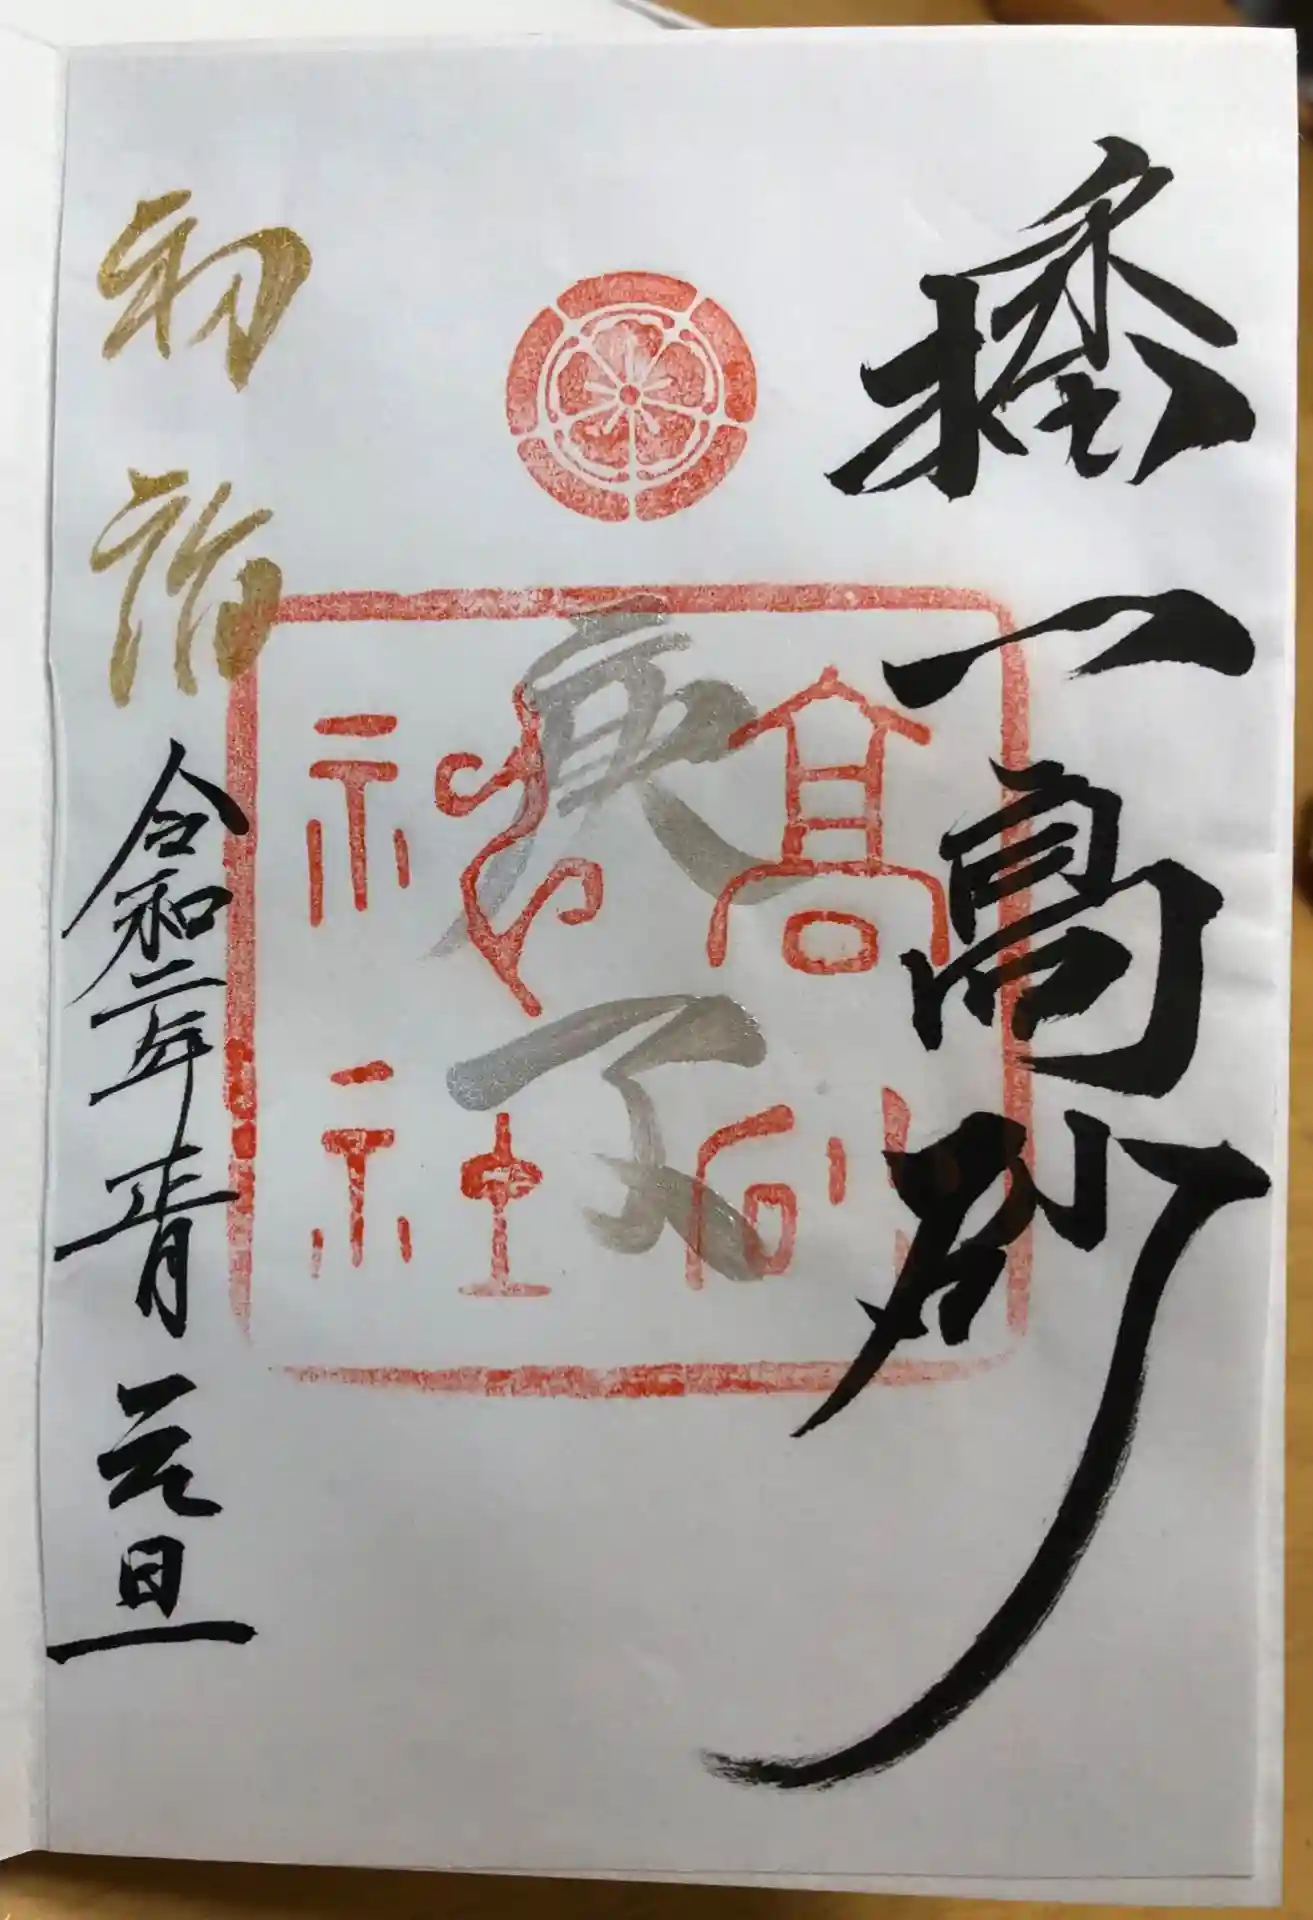 播一高砂
庚子
高砂
神社
初詣
令和二年正月
元旦